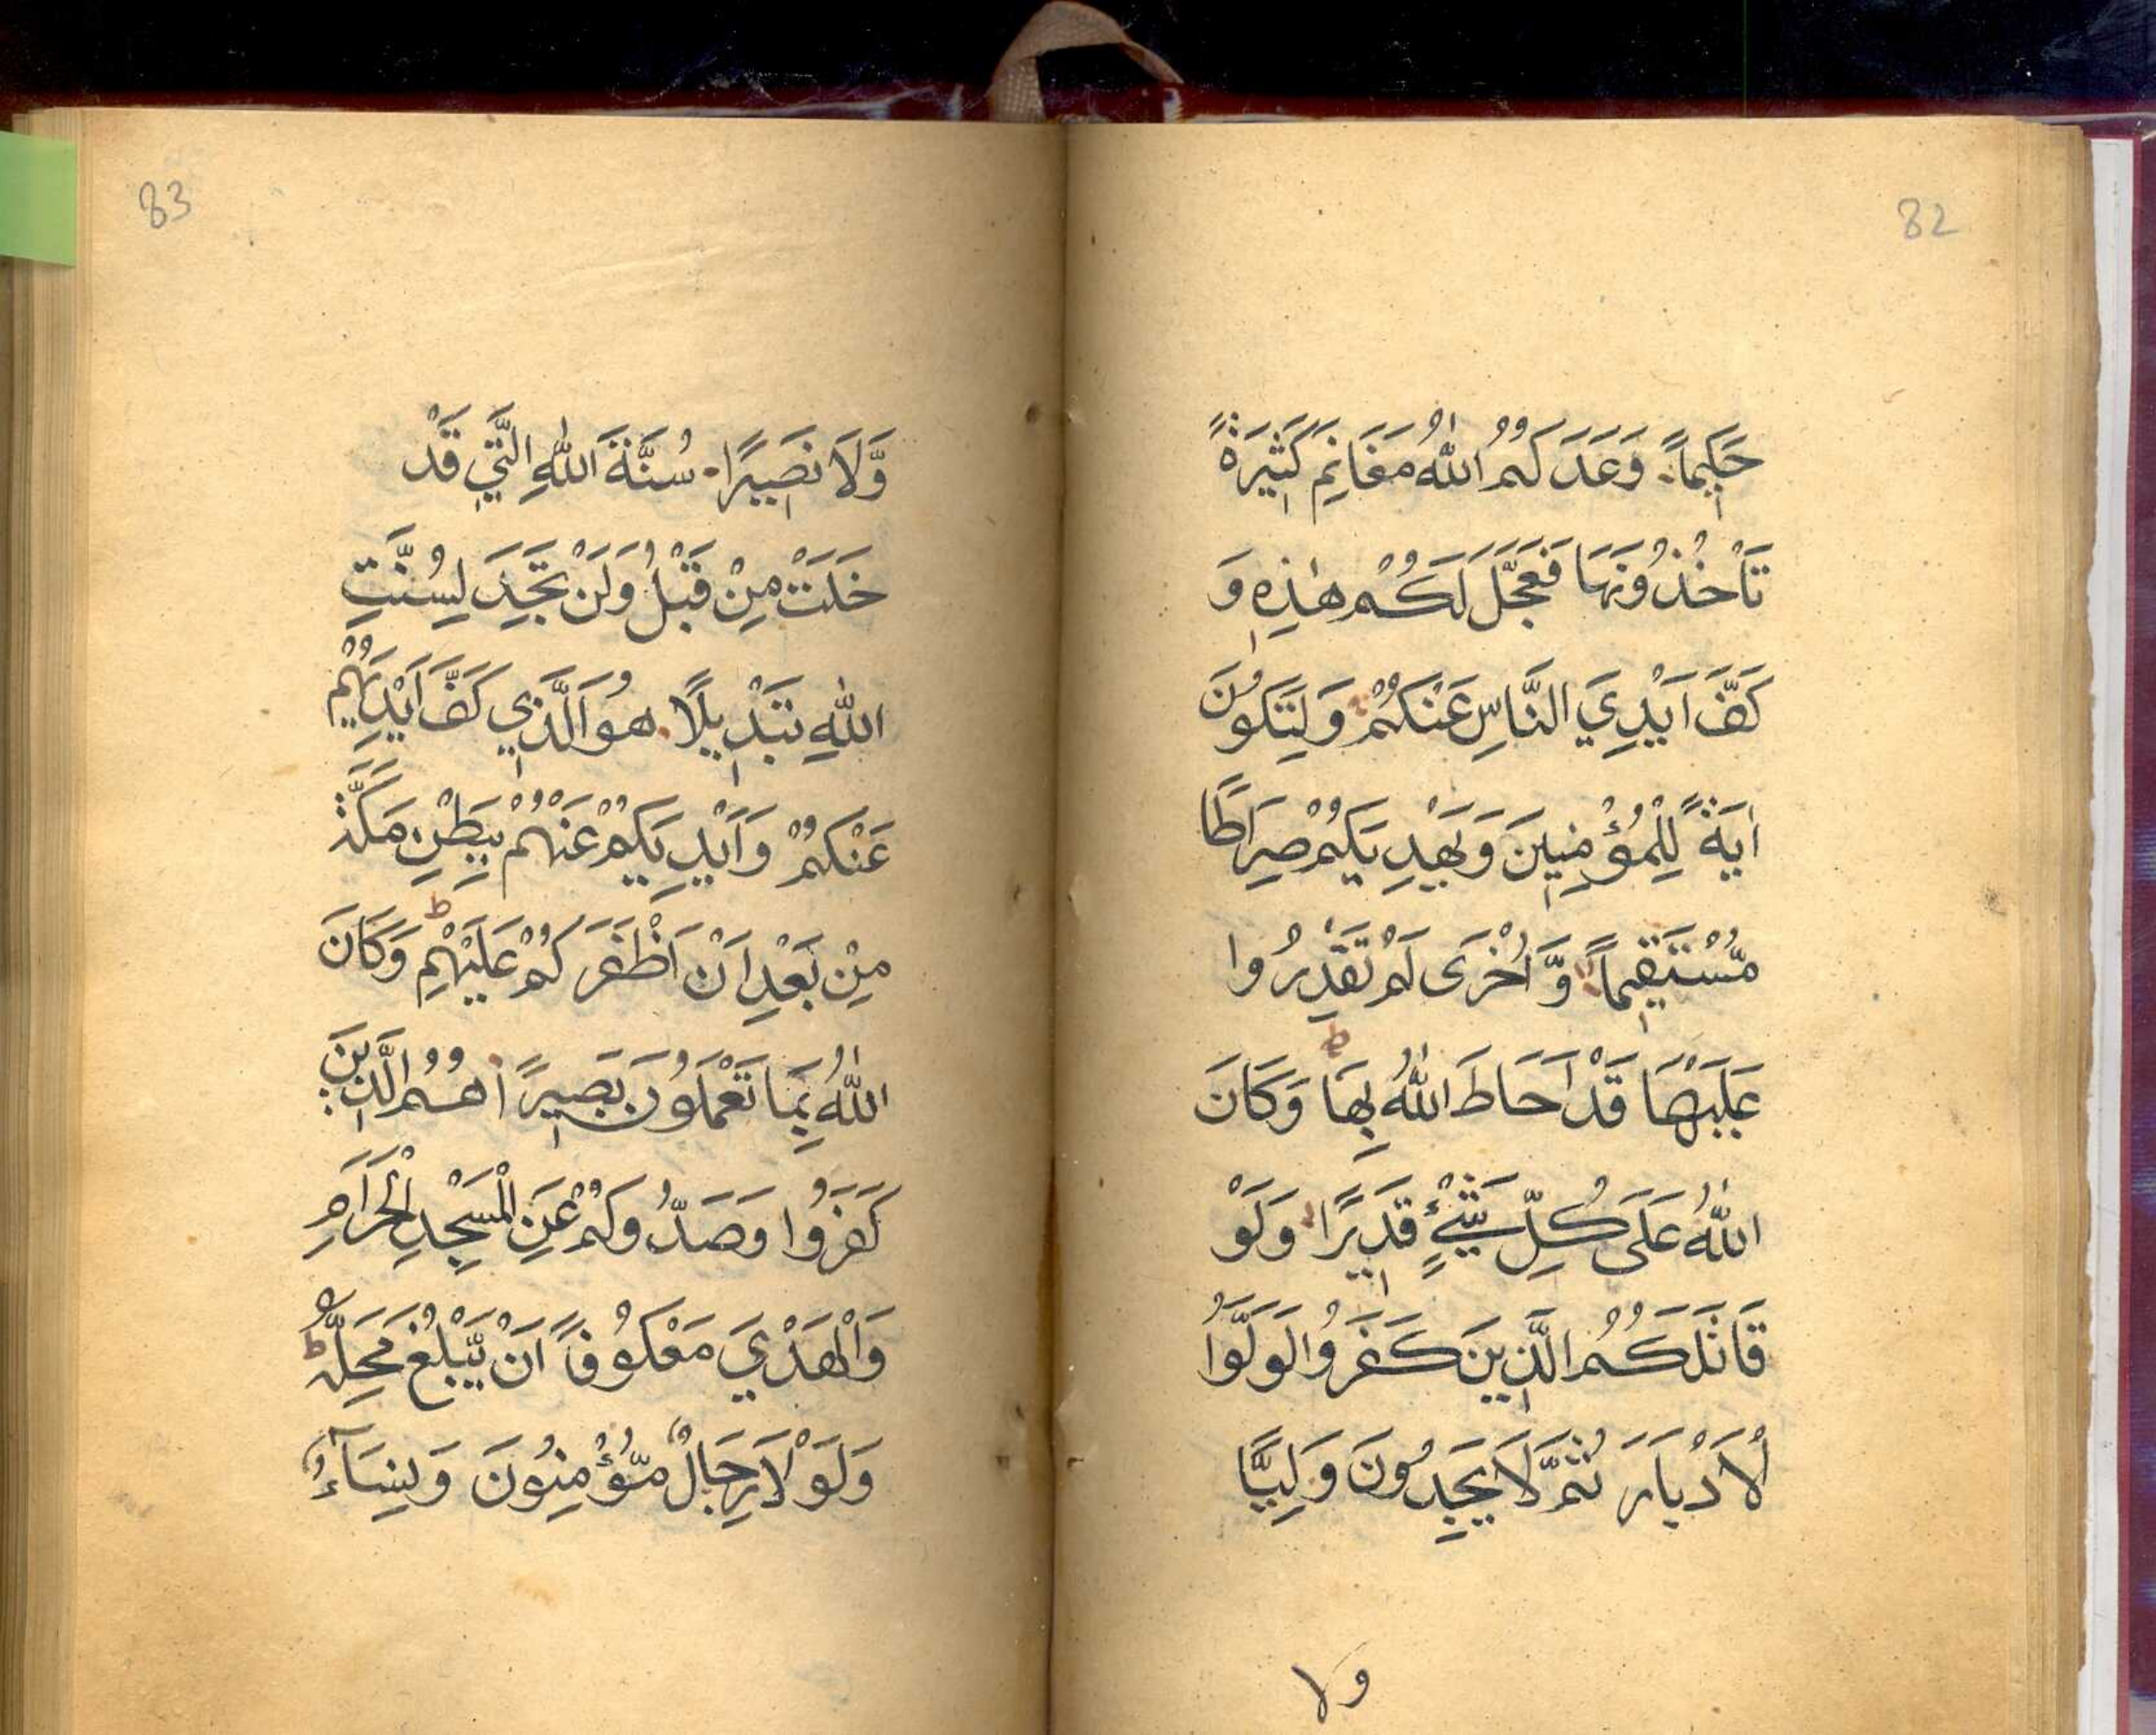 82
حَكِيْماً. وَعَدَكُمُ اللّٰهُ مَغَانِمَ كَثِيْرَةً
تَأْخُذُوْنَهَا فَعَجَّلَ لَكُمْ هٰذِهٖ وَ
كَفَّ اَيْدِيَ النَّاسِ عَنْكُمْ وَلِتَكُوْنَ
اٰيَةً لِّلْمُؤْمِنِيْنَ وَيَهْدِيَكُمْ صِرَاطًا
مُّسْتَقِيْماً وَّاُخْرَى لَمْ تَقْدِرُوا
عَلَيْهَا قَدْ اَحَاطَ اللّٰهُ بِهَا ط وَكَانَ
اللّٰهُ عَلَى كُلِّ شَيْءٍ قَدِيْرًا وَلَوْ
قَاتَلَكُمُ الَّذِيْنَ كَفَرُوْا لَوَلَّوُا
لْاَدْبَارَ ثُمَّ لَا يَجِدُوْنَ وَلِيًّا
ولا
83
وَّلَا نَصِيْرًا. سُنَّةَ اللّٰهِ الَّتِيْ قَدْ
خَلَتْ مِنْ قَبْلُ وَلَنْ تَجِدَ لِسُنَّتِ
اللّٰهِ تَبْدِيْلًا. هُوَ الَّذِيْ كَفَّ اَيْدِيَهُمْ
عَنْكُمْ وَاَيْدِيَكُمْ عَنْهُمْ بِبَطْنِ مَكَّةَ
مِنْ بَعْدِ اَنْ اَظْفَرَكُمْ عَلَيْهِمْ ط وَكَانَ
اللّٰهُ بِمَا تَعْمَلُوْنَ بَصِيْرًا هُمُ الَّذِيْنَ
كَفَرُوا وَصَدُّوْكُمْ عَنِ الْمَسْجِدِ الْحَرَامِ
وَالْهَدْيَ مَعْكُوْفاً اَنْ يَّبْلُغَ مَحِلَّهُ ط
وَلَوْلَا رِجَالٌ مُّؤْمِنُوْنَ وَنِسَآءٌ